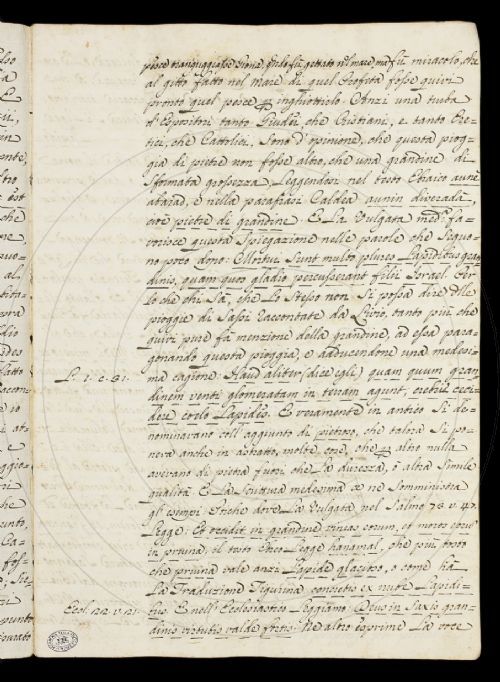 pesce tranguggiasse Giona, quando fù gettato nel mare, ma fù miracolo, che
al gitto fatto nel mare di quel Profeta fosse quivi
pronto quel pesce per inghiottirlo. Anzi una turba
d'Espositori tanto Giudei che Cristiani, e tanto Ere-
tici, che Cattolici, sono d'opinione, che questa piog-
gia di pietre non fosse altro, che una grandine di
sformata grossezza, Leggendosi nel testo Ebraico avne
abarad, e nella parafrasi Caldea avnin diverada,
cioè pietre di grandine. E La Vulgata med.a fa-
vorisce questa spiegazione nelle parole che seguo-
no poco dopo: Mortui sunt multo plures Lapidibus gran-
dinis, quam quos gladio percusserant filii Israel. Per
lo che chi sà, che lo stesso non si possa dire delle
pioggie di sassi raccontate da Livio, tanto più che
quivi pure fà menzione della grandine, ad essa para-
gonando questa pioggia, e adducendone una medesi-
L. 1. c. 31.
ma cagione: Haud aliter (dice egli) quam quum gran-
dinem venti glomeratam in terras agunt, crebri ceci-
dere coelo Lapides. E veramente in antico si de-
nominavano coll'aggiunto di pietroso, che talora si po-
neva anche in astratto, molte cose, che per altro nulla
avevano di pietra fuori che La durezza, o altra simile
qualità. E La Scrittura medesima ce ne somministra
gli esempi. Perche dove La Vulgata nel Salmo 78. v. 47.
Legge: Et occidit in grandine vineas eorum, et moros eorum
in pruina; il testo Ebreo Legge hanamal, che più tosto
che pruina vale anzi Lapide glaciei, o come hà
La Traduzione Tigurina, concretis ex nube Lapidi-
Eccli. 22. v. 21.
bus. E nell'Ecclesiastico Leggiamo: Deus in saxis gran-
dinis virtutis valde fortis. Ne altro esprime La voce